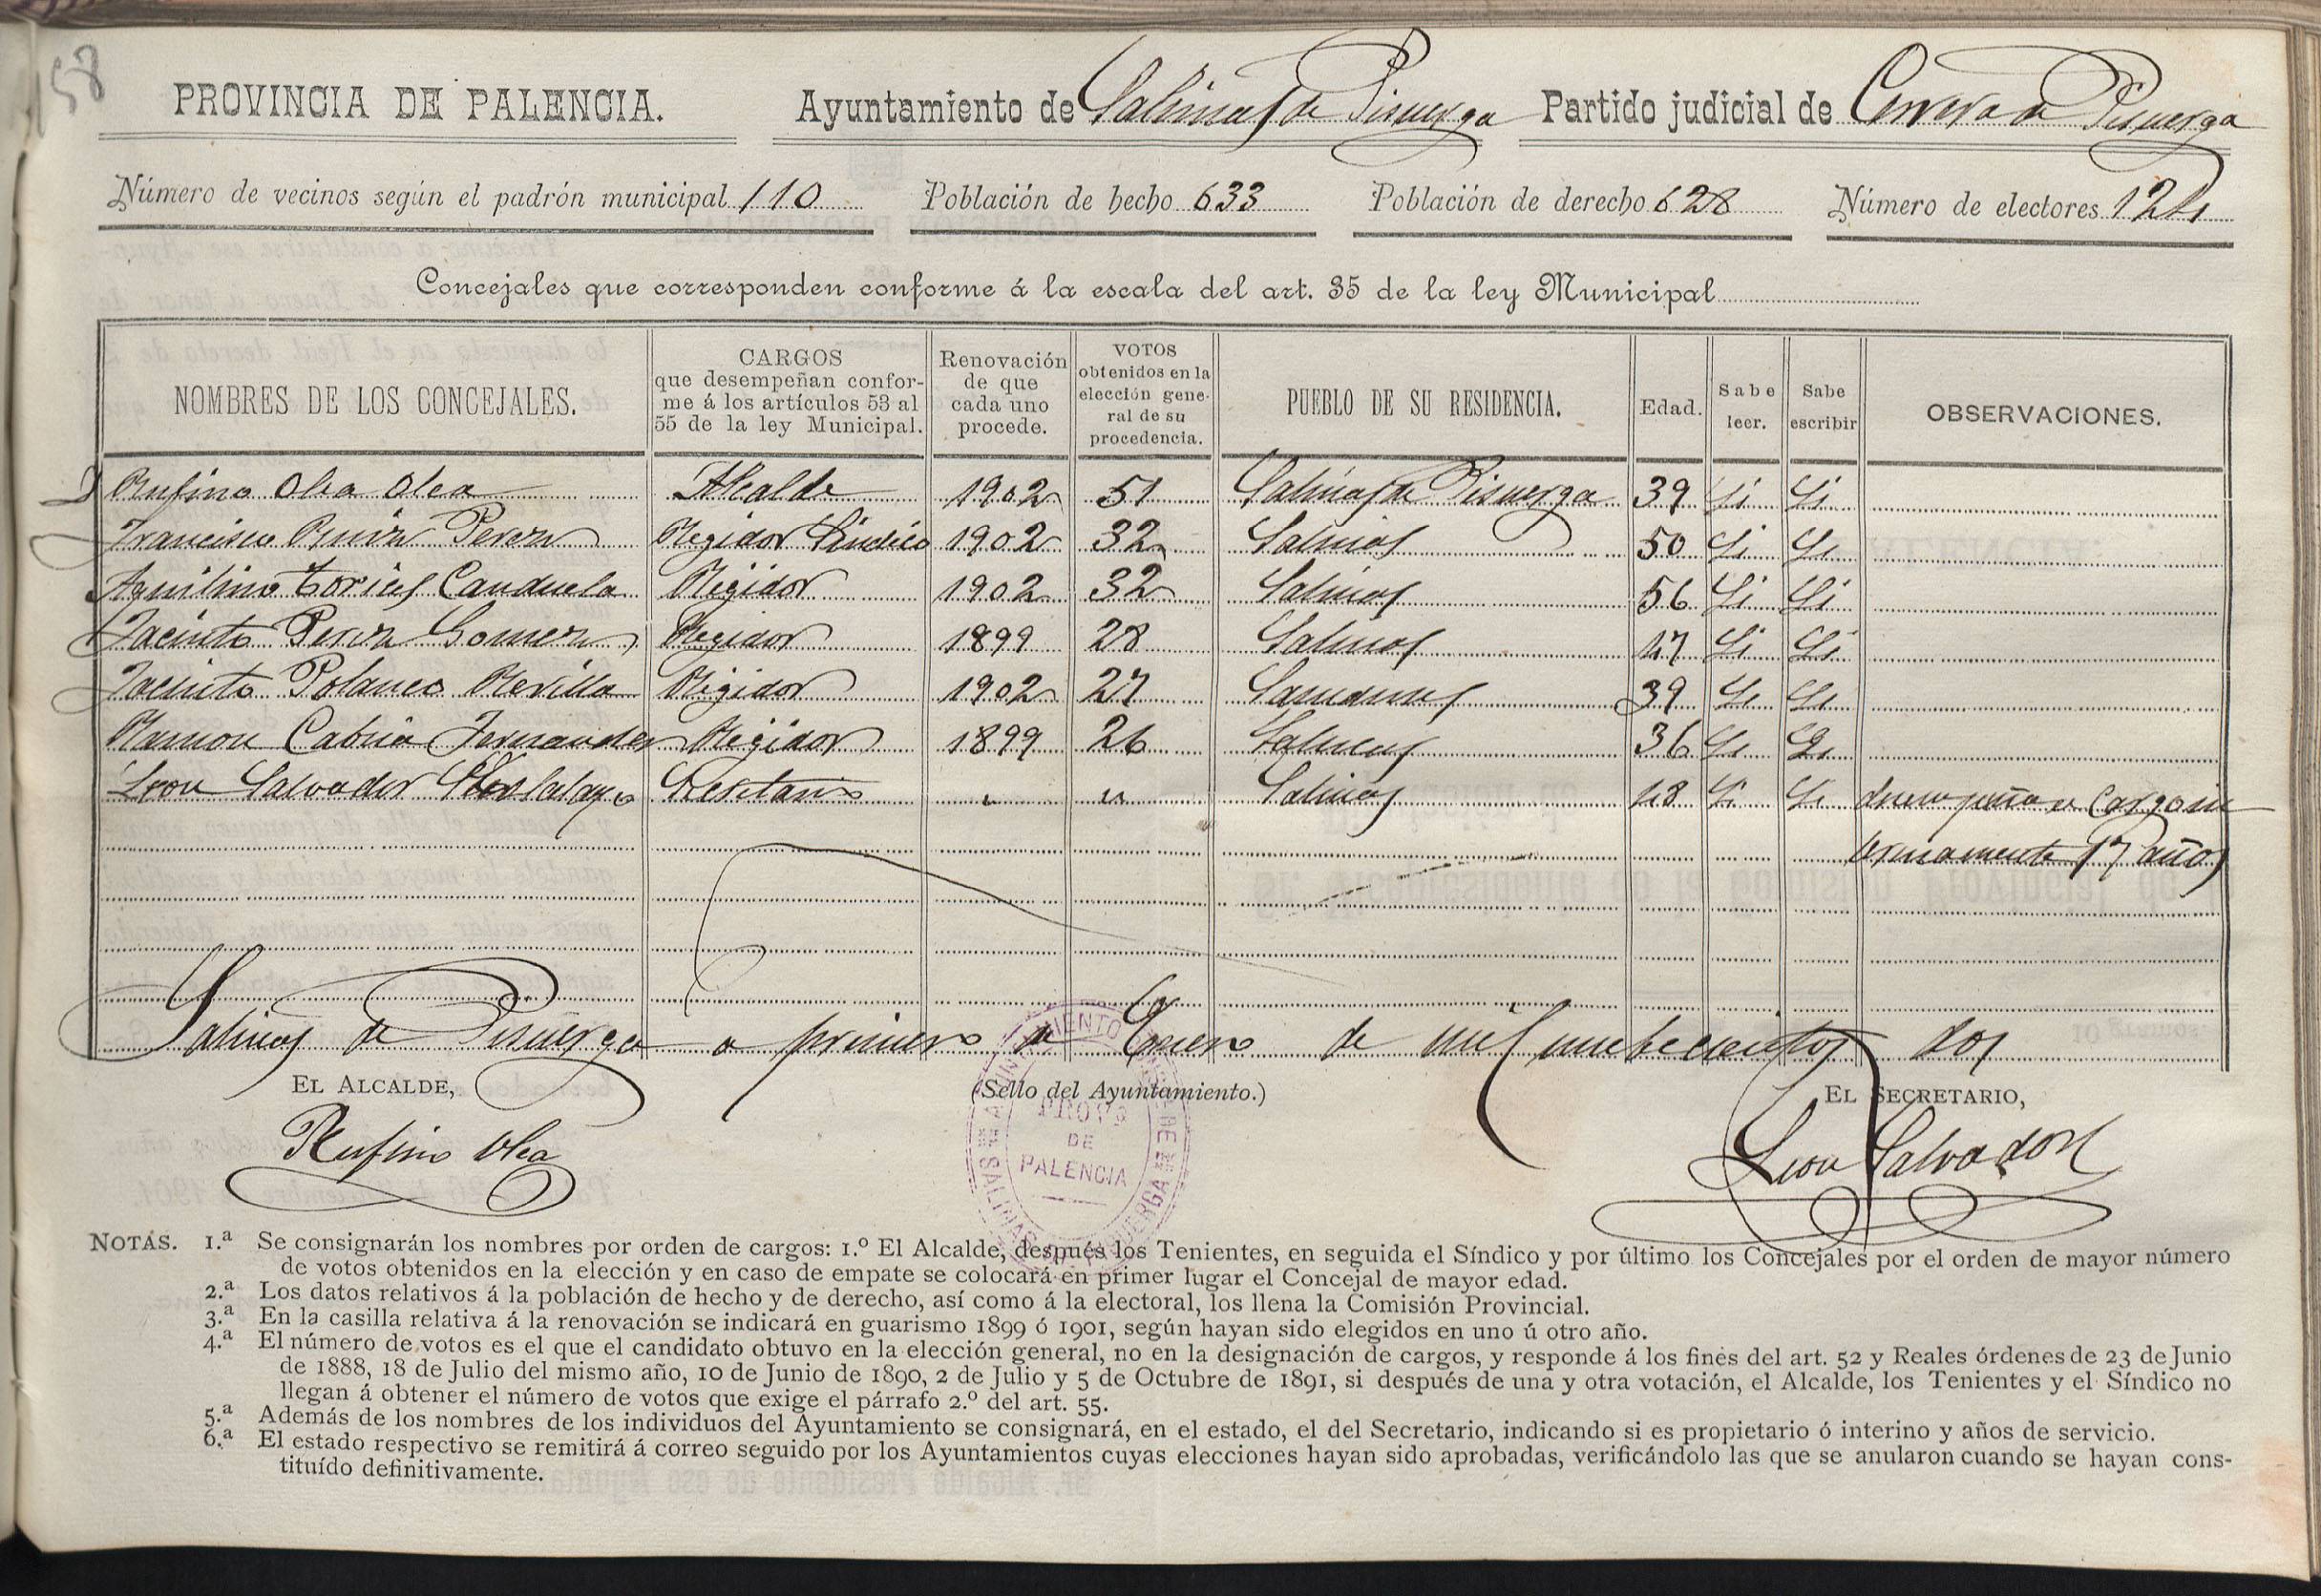 58
PROVINCIA DE PALENCIA. Ayuntamiento de Salinas de Pisuerga Partido judicial de Cervera de Pisuerga
Número de vecinos según el padrón municipal 110 Población de hecho 633 Población de derecho 628 Número de electores 124
Concejales que corresponden conforme á la escala del art. 35 de la ley Municipal
NOMBRES DE LOS CONCEJALES.
CARGOS
que desempeñan confor-
me á los artículos 53 al
55 de la ley Municipal.
Renovación
de que
cada uno
procede.
VOTOS
obtenidos en la
elección gene-
ral de su
procedencia.
PUEBLO DE SU RESIDENCIA.
Edad.
Sabe
leer.
Sabe
escribir
OBSERVACIONES.
Rufino Olea Olea Alcalde 1902 51 Salinas de Pisuerga 39 Si Si
Francisco Ruiz Perez Regidor Sindico 1902 32 Salinas 50 Si Si
Aquilino Torices Canduela Regidor 1902 32 Salinas 56 Si Si
Jacinto Perez Gomez Regidor 1899 28 Salinas 47 Si Si
Jacinto Polanco Revilla Regidor 1902 27 39 Si Si
Ramon Cabria Fernandez Regidor 1899 26 Salinas 36 Si Si
Leon Salvador Secretario " " Salinas 48 Si Si desempeña el cargo in
terinamente 17 años
Salinas de Pisuerga a primero de Enero de mil nuebecientos dos
EL ALCALDE, (Sello del Ayuntamiento.) EL SECRETARIO,
Rufino Olea
PROVª
DE
PALENCIA
Leon Salvador
NOTAS. 1.ª Se consignarán los nombres por orden de cargos: 1.º El Alcalde, después los Tenientes, en seguida el Síndico y por último los Concejales por el orden de mayor número
de votos obtenidos en la elección y en caso de empate se colocará en primer lugar el Concejal de mayor edad.
2.ª Los datos relativos á la población de hecho y de derecho, así como á la electoral, los llena la Comisión Provincial.
3.ª En la casilla relativa á la renovación se indicará en guarismo 1899 ó 1901, según hayan sido elegidos en uno ú otro año.
4.ª El número de votos es el que el candidato obtuvo en la elección general, no en la designación de cargos, y responde á los fines del art. 52 y Reales órdenes de 23 de Junio
de 1888, 18 de Julio del mismo año, 10 de Junio de 1890, 2 de Julio y 5 de Octubre de 1891, si después de una y otra votación, el Alcalde, los Tenientes y el Síndico no
llegan á obtener el número de votos que exige el párrafo 2.º del art. 55.
5.ª Además de los nombres de los individuos del Ayuntamiento se consignará, en el estado, el del Secretario, indicando si es propietario ó interino y años de servicio.
6.ª El estado respectivo se remitirá á correo seguido por los Ayuntamientos cuyas elecciones hayan sido aprobadas, verificándolo las que se anularon cuando se hayan cons-
tituído definitivamente.